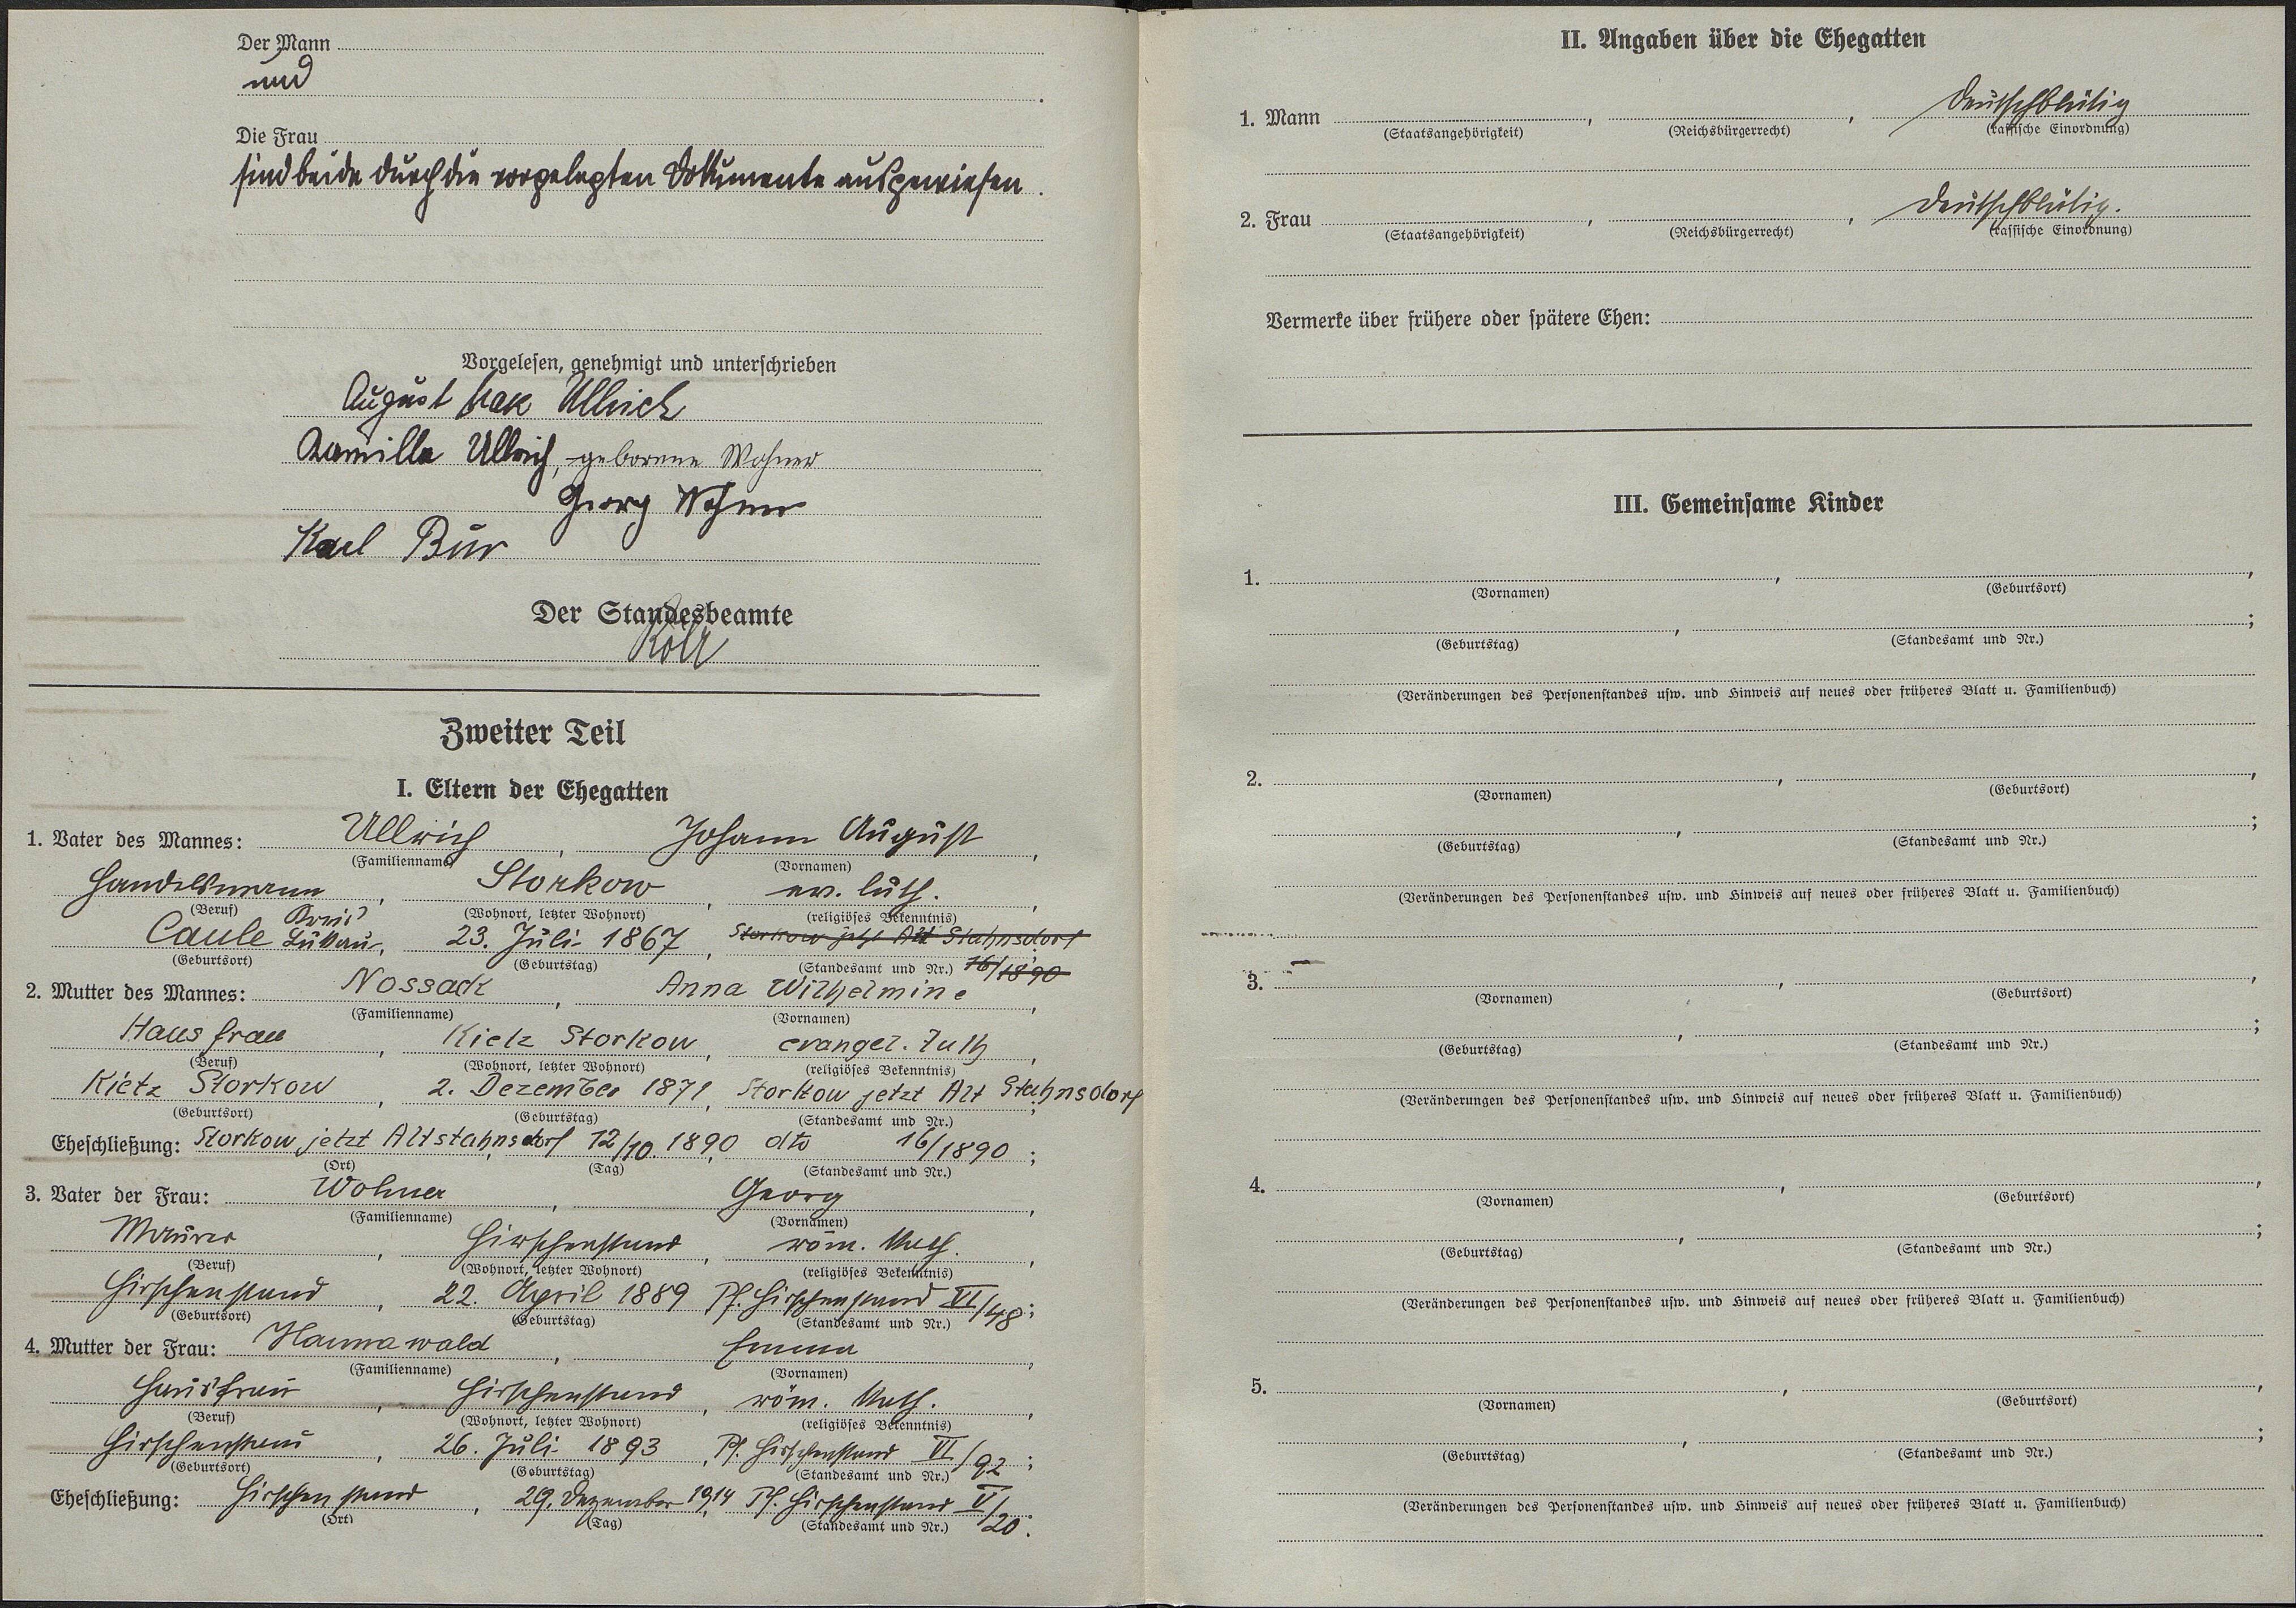 Der Mann
und
Die Frau
sind beide durch die vorgelegten Dokumente ausgewiesen.
Vorgelesen, genehmigt und unterschrieben
August Max Ullrich
Kamilla Ullrich, geborene Wohner
Georg Wohner
Karl
Der Standesbeamte
Zweiter Teil
I. Eltern der Ehegatten
1. Vater des Mannes: Ullrich, Johann August,
(Familienname) (Vornamen)
Handelsmann, Storkow, ev. luth.,
(Beruf) (Wohnort, letzter Wohnort) (religiöses Bekenntnis)
Kreis
Caule Lukau, 23. Juli 1867, Storkow jetzt Alt Stahnsdorf
(Geburtsort) (Geburtstag) (Standesamt und Nr.) 16/1890
2. Mutter des Mannes: Nossack, Anna Wilhelmine,
(Familienname) (Vornamen)
Hausfrau, Kietz Storkow, evangel. luth,
(Beruf) (Wohnort, letzter Wohnort) (religiöses Bekenntnis)
Kietz Storkow, 2. Dezember 1871, Storkow jetzt Alt Stahnsdorf;
(Geburtsort) (Geburtstag) (Standesamt und Nr.)
Eheschließung: Storkow jetzt Altstahnsdorf, 12/10. 1890, dto 16/1890;
(Ort) (Tag) (Standesamt und Nr.)
3. Vater der Frau: Wohner, Georg,
(Familienname) (Vornamen)
Maurer, Hirschenstand, röm. kath.,
(Beruf) (Wohnort, letzter Wohnort) (religiöses Bekenntnis)
Hirschenstand, 22. April 1889 Pf. Hirschenstand VI/48;
(Geburtsort) (Geburtstag) (Standesamt und Nr.)
4. Mutter der Frau: Hannawald, Emma,
(Familienname) (Vornamen)
Hausfrau, Hirschenstand, röm. kath.,
(Beruf) (Wohnort, letzter Wohnort) (religiöses Bekenntnis)
Hirschenstand, 26. Juli 1893, Pf. Hirschenstand VI/92;
(Geburtsort) (Geburtstag) (Standesamt und Nr.)
Eheschließung: Hirschenstand, 29. Dezember 1914, Pf. Hirschenstand V/20.
(Ort) (Tag) (Standesamt und Nr.)
II. Angaben über die Ehegatten
1. Mann , , deutschblütig
(Staatsangehörigkeit) (Reichsbürgerrecht) (rassische Einordnung)
2. Frau , , deutschblütig.
(Staatsangehörigkeit) (Reichsbürgerrecht) (rassische Einordnung)
Vermerke über frühere oder spätere Ehen:
III. Gemeinsame Kinder
1. , ,
(Vornamen) (Geburtsort)
, ;
(Geburtstag) (Standesamt und Nr.)
(Veränderungen des Personenstandes usw. und Hinweis auf neues oder früheres Blatt u. Familienbuch)
2. , ,
(Vornamen) (Geburtsort)
, ;
(Geburtstag) (Standesamt und Nr.)
(Veränderungen des Personenstandes usw. und Hinweis auf neues oder früheres Blatt u. Familienbuch)
3. , ,
(Vornamen) (Geburtsort)
, ;
(Geburtstag) (Standesamt und Nr.)
(Veränderungen des Personenstandes usw. und Hinweis auf neues oder früheres Blatt u. Familienbuch)
4. , ,
(Vornamen) (Geburtsort)
, ;
(Geburtstag) (Standesamt und Nr.)
(Veränderungen des Personenstandes usw. und Hinweis auf neues oder früheres Blatt u. Familienbuch)
5. , ,
(Vornamen) (Geburtsort)
, ;
(Geburtstag) (Standesamt und Nr.)
(Veränderungen des Personenstandes usw. und Hinweis auf neues oder früheres Blatt u. Familienbuch)